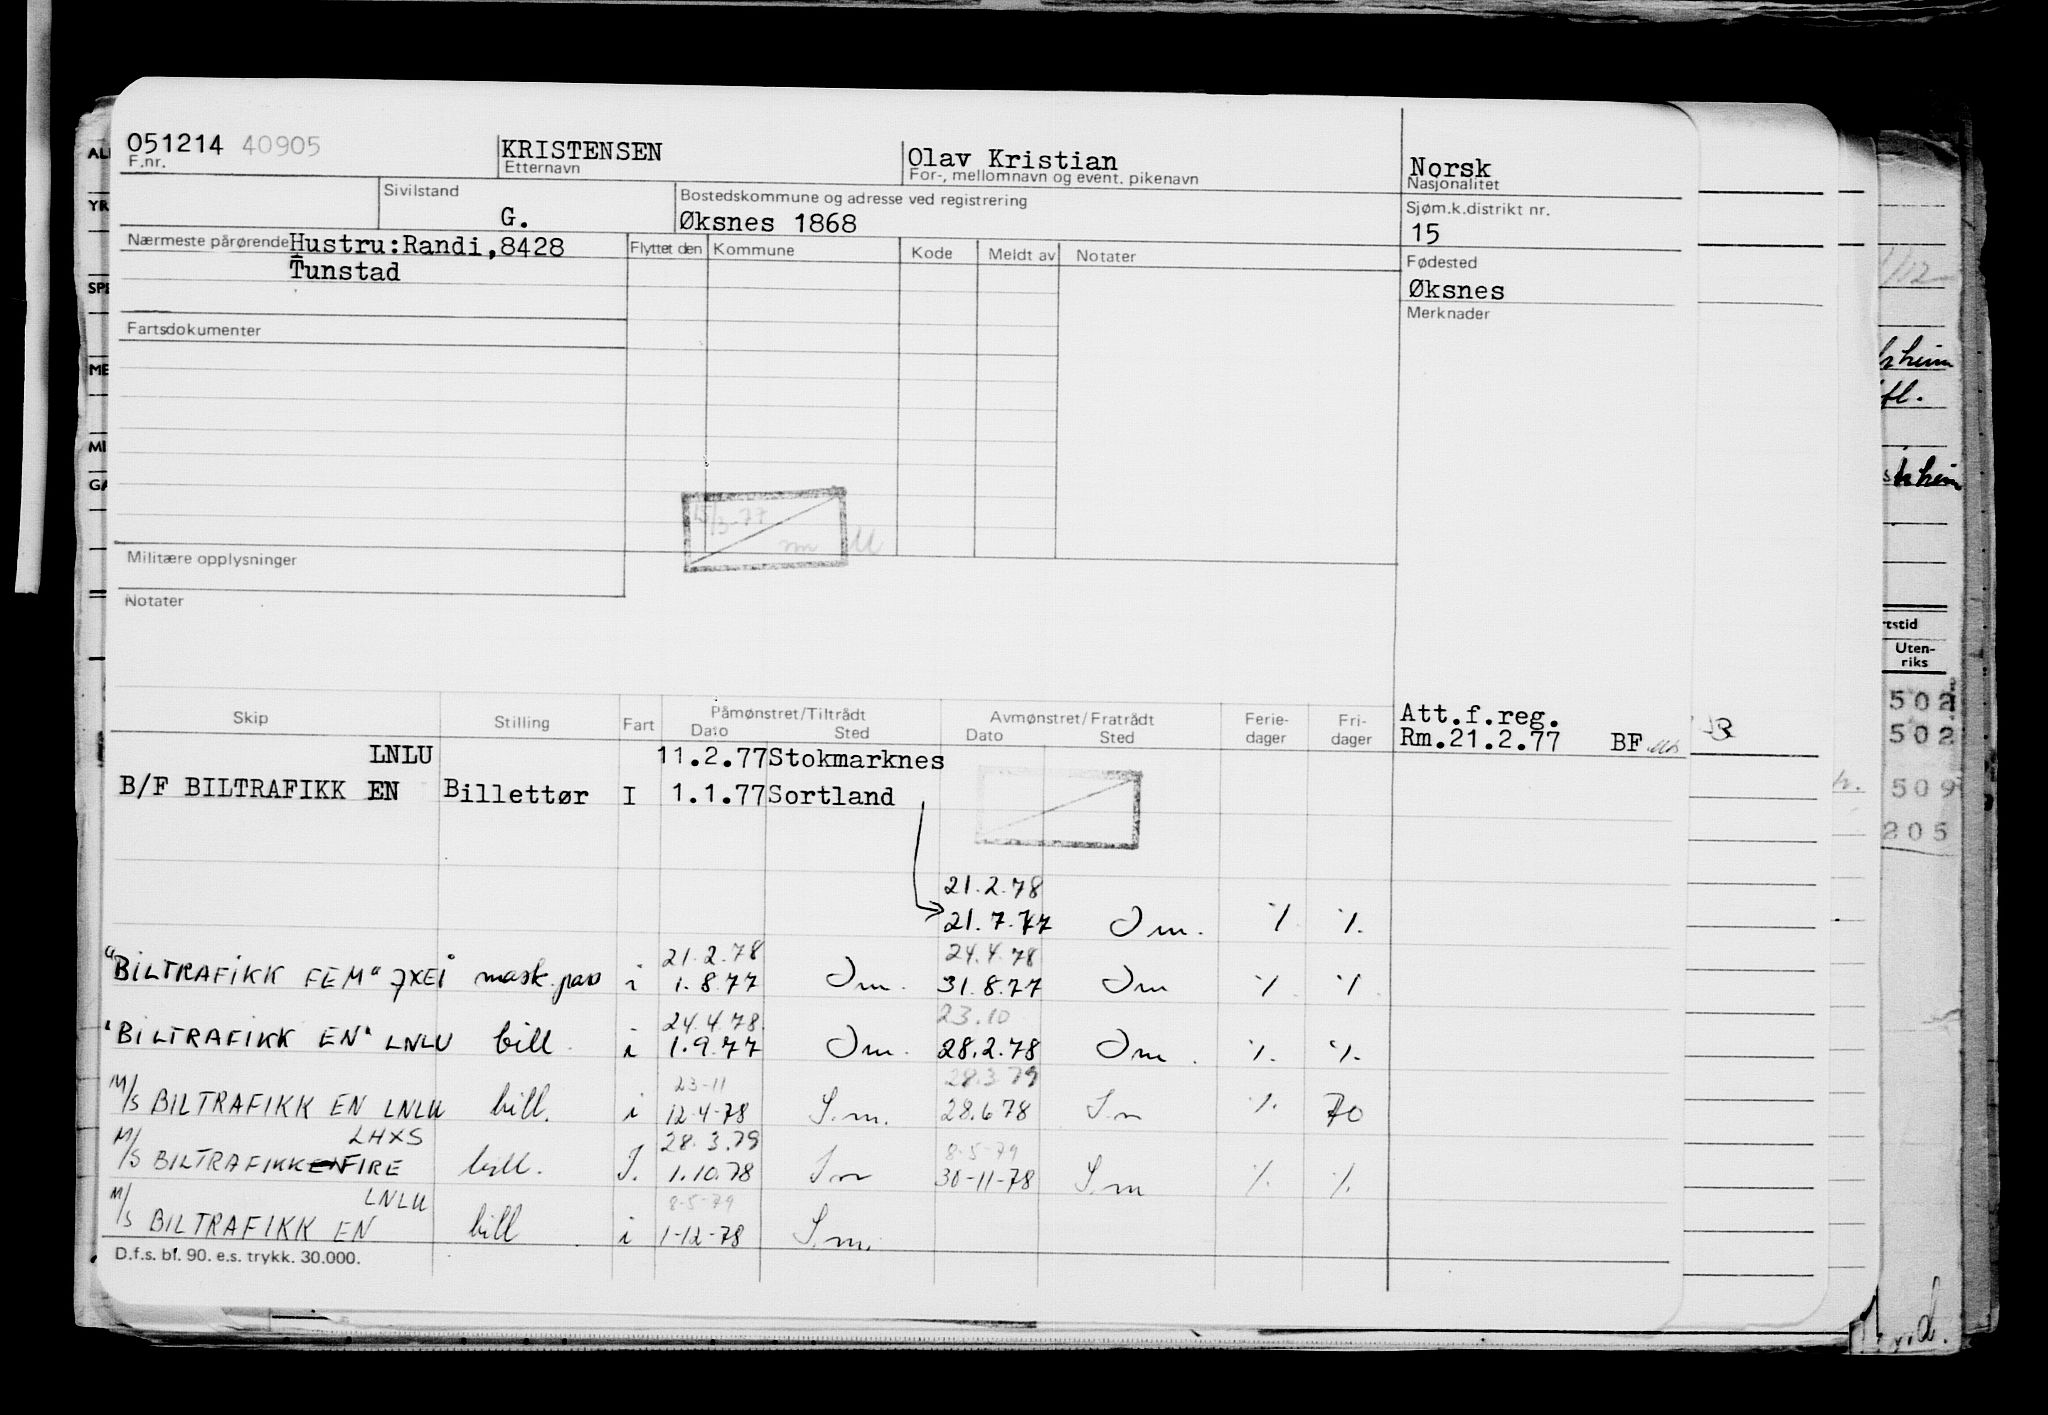 051214 40905 KRISTENSEN Olav Kristian Norsk
F.nr. Etternavn For-, mellomnavn og event. pikenavn Nasjonalitet
Sivilstand Bostedskommune og adresse ved registrering Sjøm.k.distrikt nr.
G. Øksnes 1868 15
Nærmeste pårørende Hustru:Randi,8428 Flyttet den Kommune Kode Meldt av Notater Fødested
Tunstad Øksnes
Merknader
Fartsdokumenter
15/3-77
Militære opplysninger
Notater
Skip Stilling Fart Påmønstret/Tiltrådt Avmønstret/Fratrådt Ferie- Fri- Att.f.reg.
Dato Sted Dato Sted dager dager Rm.21.2.77 BF
LNLU 11.2.77 Stokmarknes
B/F BILTRAFIKK EN Billettør I 1.1.77 Sortland
21.2.78
21.7.77 Sm. % %
21.2.78 24.4.78
"BILTRAFIKK FEM" JXEI mask.pass i 1.8.77 Sm. 31.8.77 Sm % %
24.4.78. 23.10
"BILTRAFIKK EN" LNLU bill. i 1.9.77 Sm. 28.2.78 Sm. % %
23-11 28.3.79
M/S BILTRAFIKK EN LNLU bill. i 12-4-78 S.m. 28.6.78 S.m % 70
LHXS 28.3.79 8-5-79
M/S BILTRAFIKK EN FIRE bill. I. 1.10.78 S.m 30-11-78 S.m % %
LNLU 8-5-79
M/S BILTRAFIKK EN bill i 1-12-78 S.m.
D.f.s. bl. 90. e.s. trykk. 30.000.
AL
YR
SPE
ME
MI
GA
1/12
heim
fl.
heim
rtstid
Uten-
riks
502
502
509
205